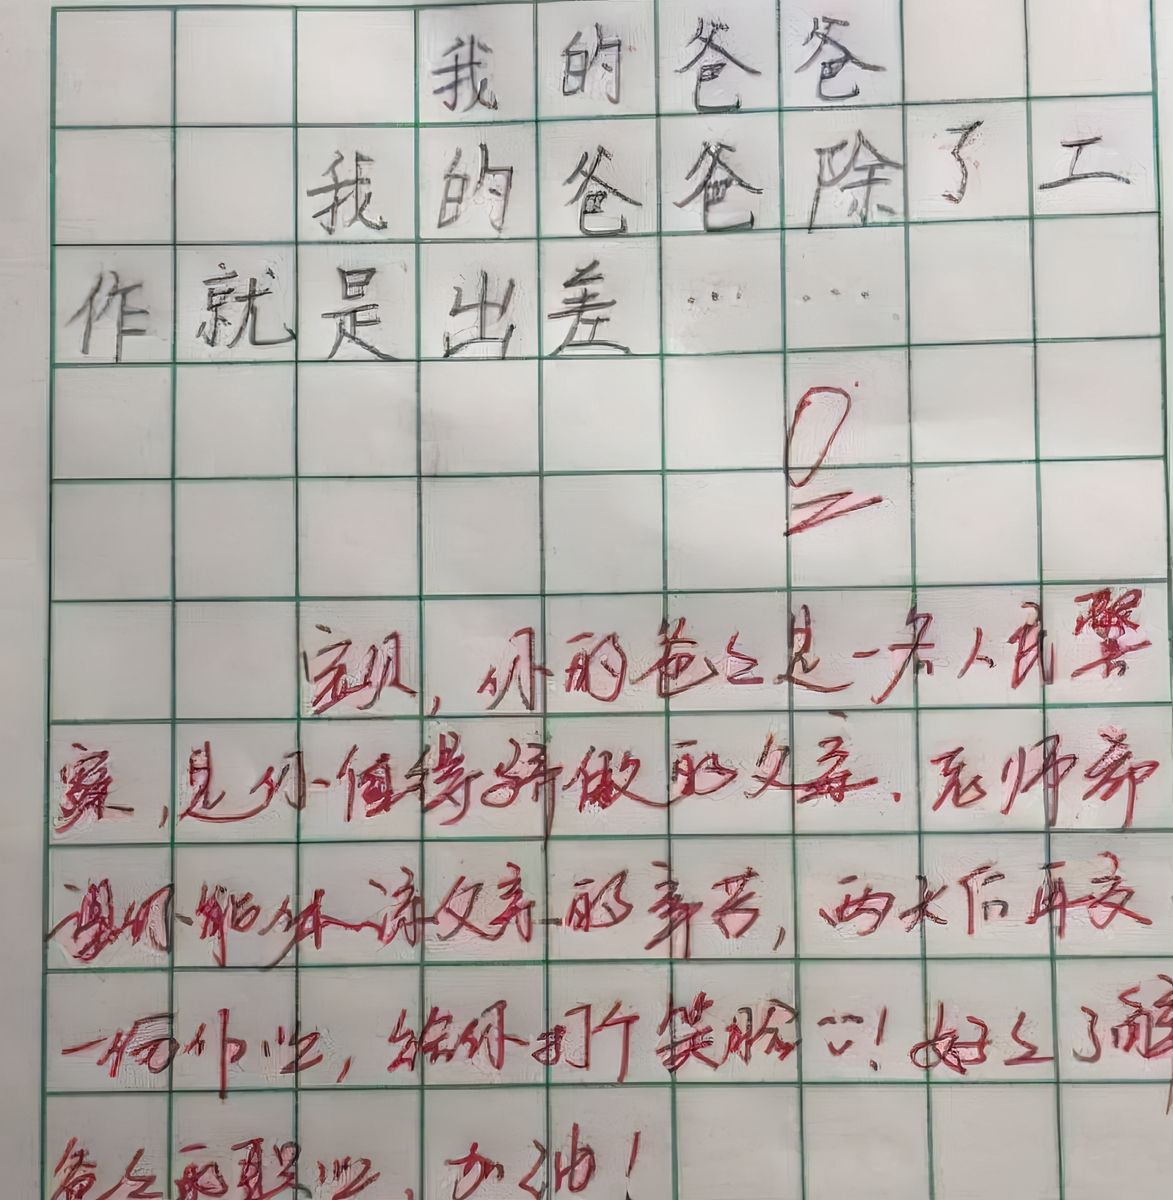 我的爸爸
我的爸爸除了工
作就是出差……
0
宝贝，你的爸爸是一名人民警
察，是你值得骄傲的父亲。老师希
望你能体谅父亲的辛苦，两天后再交
一份作业，给你打个笑脸！好好了解
爸爸的职业，加油！